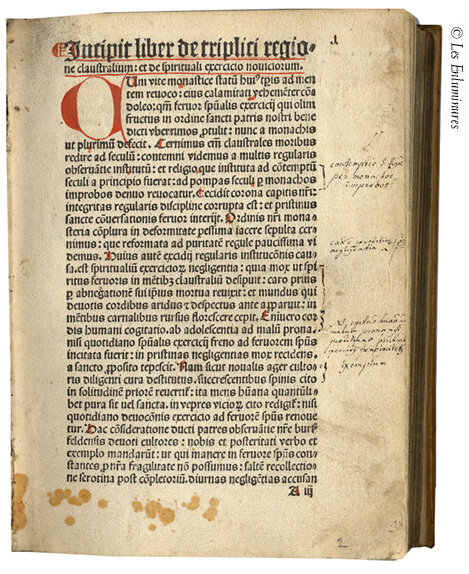 Incipit liber de triplici regio-
ne claustralium: et de spirituali exercicio noviciorum.
Cum vite monastice statũ huiꝰ tp̃is ad men
tem revoco: eius calamitatẽ vehemẽter cõ
doleo: qm̃ feruor spũalis exercicij qui olim
fructus in ordine sancti patris nostri bene
dicti vberrimos ꝓtulit: nunc a monachis
ut plurimũ defecit. Cernimus em̃ claustrales moribus
redire ad seculũ: contemni videmus a multis regularis
obseruãtie institutũ: et religio que instituta ad cõtemptũ
seculi a principio fuerat: ad pompas seculi ꝑ monachos
improbos denuo reuocatur. Cecidit corona capitis nr̃i:
integritas regularis discipline corrupta est: et pristinus
sancte cõuersationis feruor interijt. Ordinis nr̃i mona-
steria cõplura in deformitate pessima iacere sepulta cer
nimus: que reformata ad puritatẽ regule paucissima vi
demus. Huius autẽ excidij regularis institucõnis cau-
sa est spiritualiũ exercicioꝝ negligentia: quia mox ut spi
ritus feruoris in mẽtibꝰ claustraliũ desipuit: caro prius
ꝑ abnegatiõnẽ sui ipsius mortua reuixit: et mundus qui
deuotis cordibus aridus et despectus ante apparuit: in
mẽtibus carnalibus rursus florescere cepit. Enimuero cor
dis humani cogitatio ab adolescentia ad malũ prona.
nisi quotidiano spũalis exercicij freno ad feruorem spũs
incitata fuerit: in pristinas negligentias mox recidens
a sancto ꝓposito tepescit. Nam sicut noualis ager culto
ris diligenti cura destitutus, succrescentibus spinis cito
in solitudinẽ priorẽ reuertit̃: ita mens hũana quantũli-
bet pura sit uel sancta. in vepres vicioꝝ cito redigit̃: nisi
quotidiano deuocõnis exercicio ad feruorẽ spũs renoue
tur. Hac cõsideratione ducti patres obseruãtie nr̃e burſ
feldensis deuoti cultores: nobis et posteritati verbo et
exemplo mandarũt: ut qui manere in feruore spũs con-
stantes ꝓ nr̃a fragilitate nõ possumus: saltẽ recollectio-
ne serotina post cõpletoriũ. diurnas negligẽtias accusan
A iij
contemptio
per monachos
improbos
negligentia
exemplum
2
© Les Enluminures